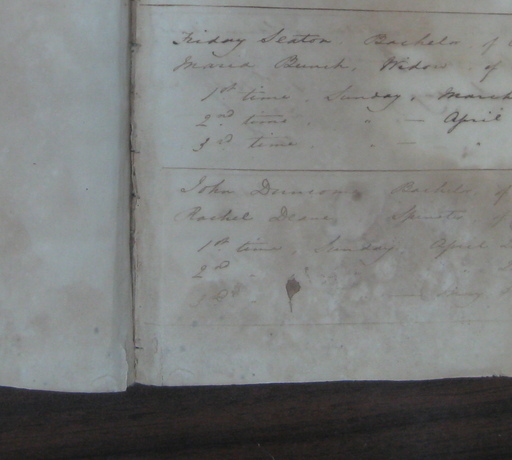 Friday Seaton. Bachelor of
Maria Bunch, Widow of
1st time. Sunday, March
2nd time. " — April
3rd time. " —
John Duncom Bachelor of
Rachel Deane Spinster of
1st time, Sunday April
2nd
3rd —